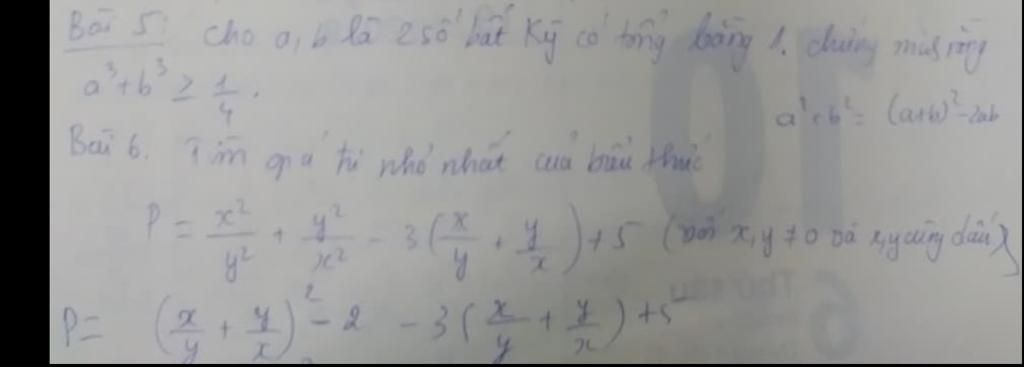 Bài 5: Cho a, b là 2 số bất kỳ có tổng bằng 1. chứng minh rằng
a³ + b³ ≥ 1/4.
a² + b² = (a+b)² - 2ab
Bài 6. Tìm giá trị nhỏ nhất của biểu thức
P = x²/y² + y²/x² - 3(x/y + y/x) + 5 (với x, y ≠ 0 và x, y cùng dấu)
P = (x/y + y/x)² - 2 - 3(x/y + y/x) + 5